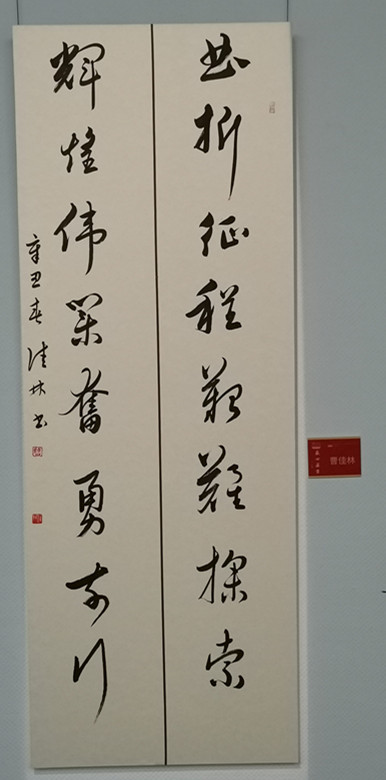 曲折征程艱難探索
輝煌伟業奮勇前行
辛丑春 佳林书
曹佳林